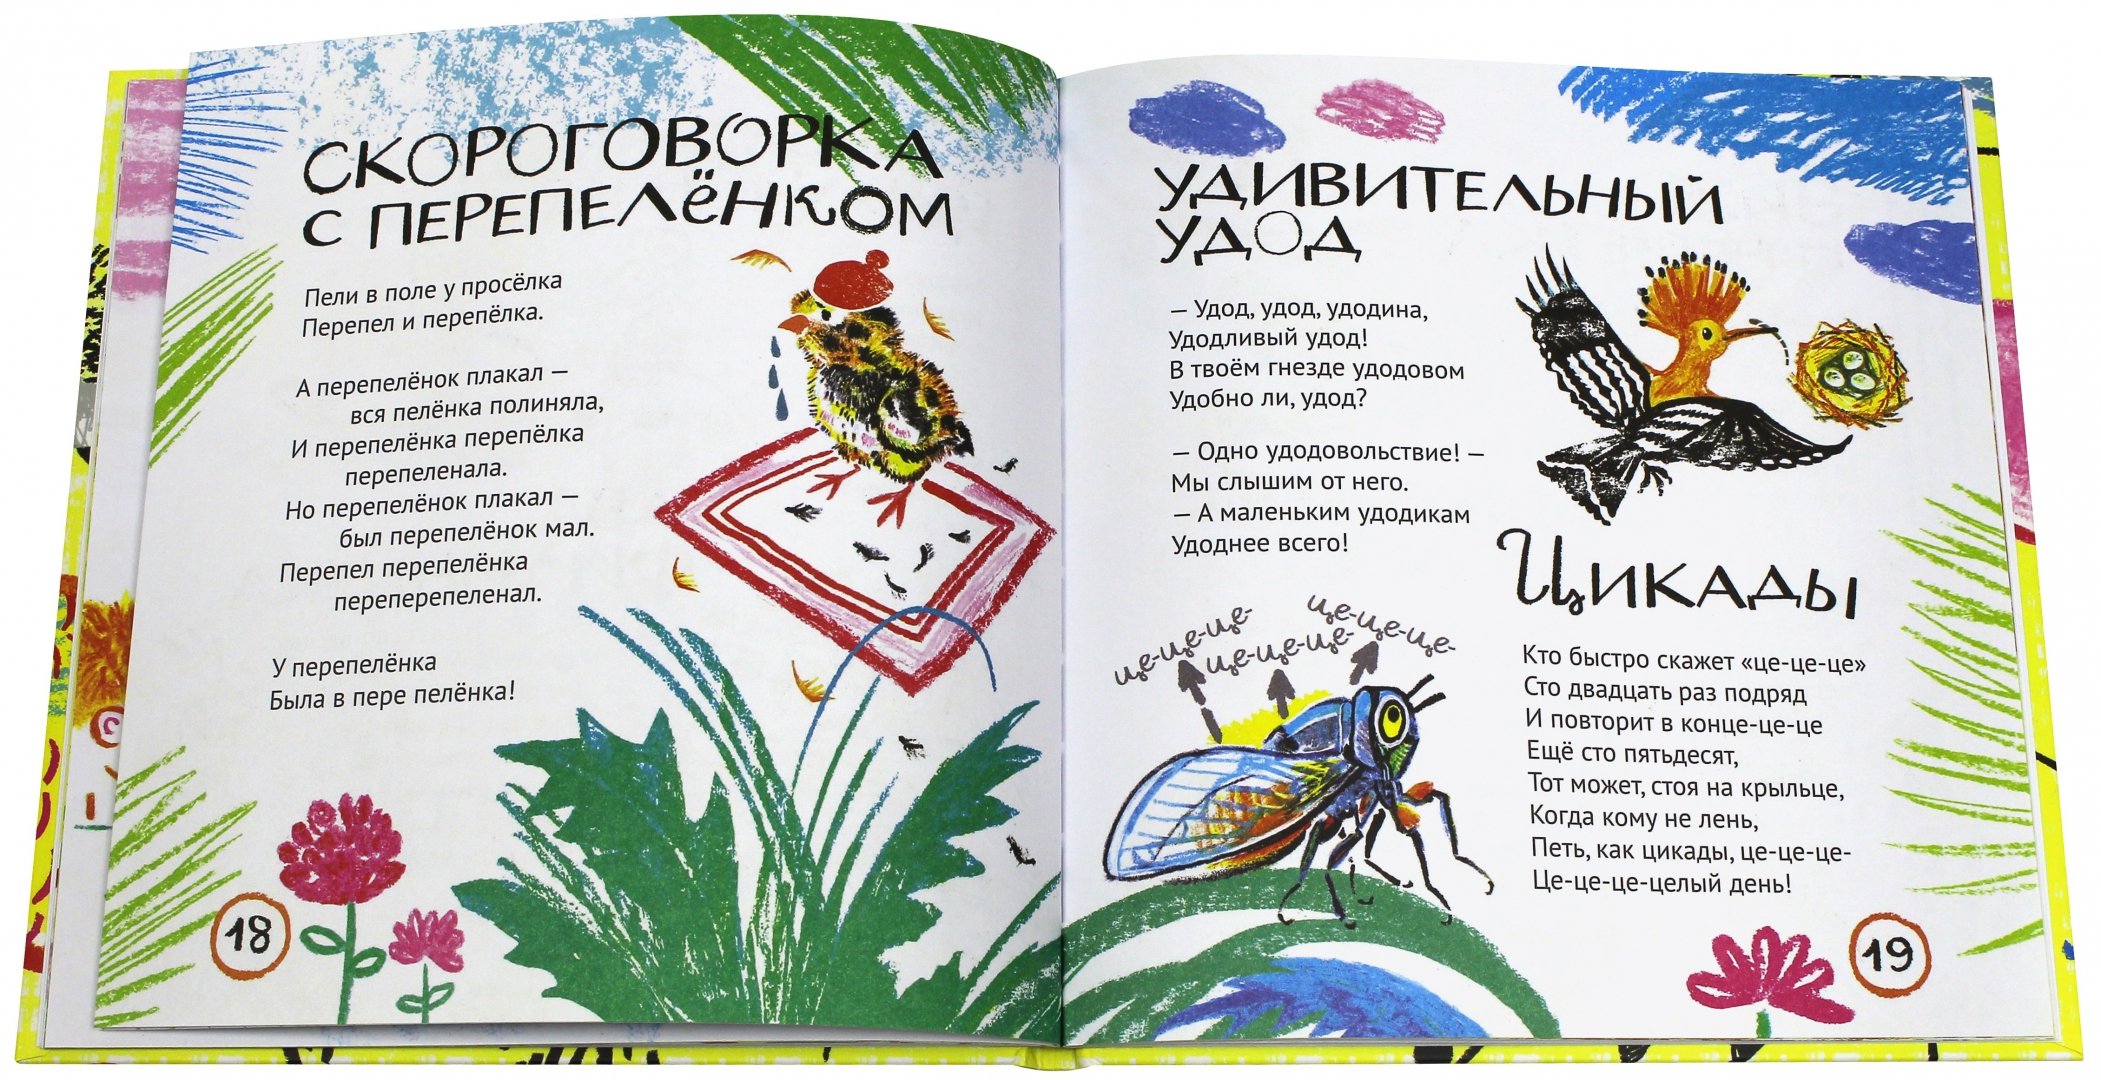 СКОРОГОВОРКА
С ПЕРЕПЕЛЁНКОМ
Пели в поле у просёлка
Перепел и перепёлка.
А перепелёнок плакал —
вся пелёнка полиняла,
И перепелёнка перепёлка
перепеленала.
Но перепелёнок плакал —
был перепелёнок мал.
Перепел перепелёнка
переперепеленал.
У перепелёнка
Была в пере пелёнка!
18
УДИВИТЕЛЬНЫЙ
УДОД
— Удод, удод, удодина,
Удодливый удод!
В твоём гнезде удодовом
Удобно ли, удод?
— Одно удодовольствие! —
Мы слышим от него.
— А маленьким удодикам
Удоднее всего!
ЦИКАДЫ
це-це-це-
це-це-це-
це-це-це-
Кто быстро скажет «це-це-це»
Сто двадцать раз подряд
И повторит в конце-це-це
Ещё сто пятьдесят,
Тот может, стоя на крыльце,
Когда кому не лень,
Петь, как цикады, це-це-це-
Це-це-це-целый день!
19